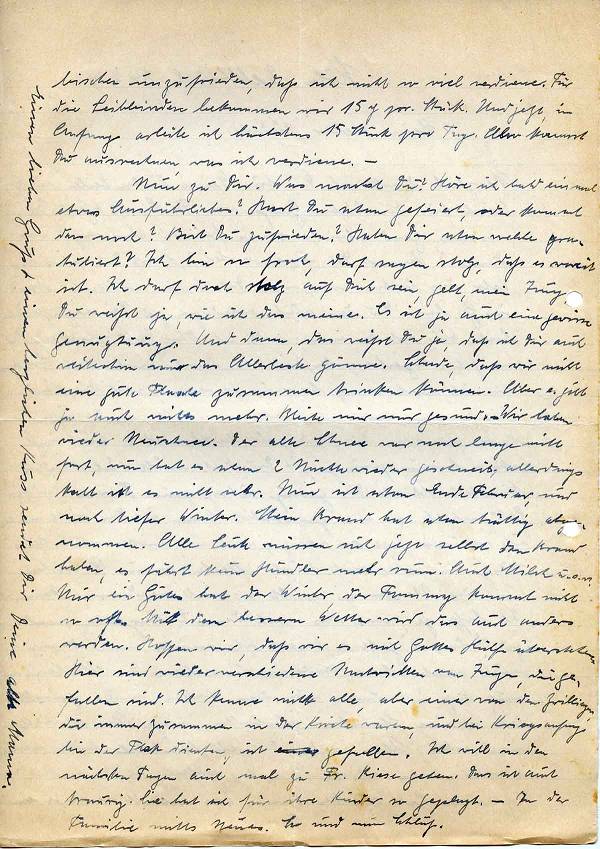 bischen unzufrieden, daß ich nicht so viel verdiene. Für
die Leibbinden bekommen wir 15 ₰ pro Stück. Und jetzt, im
Anfang arbeite ich höchstens 15 Stück pro Tag. Also kannst
Du ausrechnen, was ich verdiene. –
Nun zu Dir. Was machst Du? Höre ich bald einmal
etwas Ausführliches? Hast Du schon gefeiert, oder kommt
das noch? Bist Du zufrieden? Haben Dir schon welche gra-
tuliert? Ich bin so froh, darf sagen stolz, daß es so weit
ist. Ich darf doch stolz auf Dich sein, gelt, mein Junge
Du weißt ja, wie ich das meine. Es ist ja auch eine gewisse
Genugtuung. Und dann, das weißt Du ja, daß ich Dir auch
weiterhin nur das Allerbeste gönne. Schade, daß wir nicht
eine gute Flasche zusammen trinken können. Aber es gibt
ja auch nichts mehr. Bleibe mir nur gesund. – Wir haben
wieder Neuschnee. Der alte Schnee war noch lange nicht
fort, nun hat es schon 2 Nächte wieder geschneit, allerdings
kalt ist es nicht sehr. Nun ist schon Ende Februar, und
noch tiefer Winter. Mein Brand hat schon tüchtig abge-
nommen. Alle Leute müssen sich jetzt selbst den Brand
holen, es fährt kein Händler mehr rum. Auch Milch u.s.w.
Nur ein Gutes hat der Winter der Tommy kommt nicht
so oft. Mit dem bessern Wetter wird das auch anders
werden. Hoffen wir, daß wir es mit Gottes Hülfe überstehen.
Hier sind wieder verschiedene Nachrichten von Jungen, die ge-
fallen sind. Ich kenne nicht alle, aber einer von den Zwillingen,
die immer zusammen in der Kirche waren, und bei Kriegsanfang
bei der Flak dienten, ist gefallen. Ich will in den
nächsten Tagen auch mal zu Fr. Kiese gehen. Das ist auch
traurig. Sie hat sich für ihre Kinder so geplagt. – In der
Familie nichts Neues. So und nun Schluß.
Einen lieben Gruß & einen herzlichen Kuss sendet Dir Deine alte Mama.